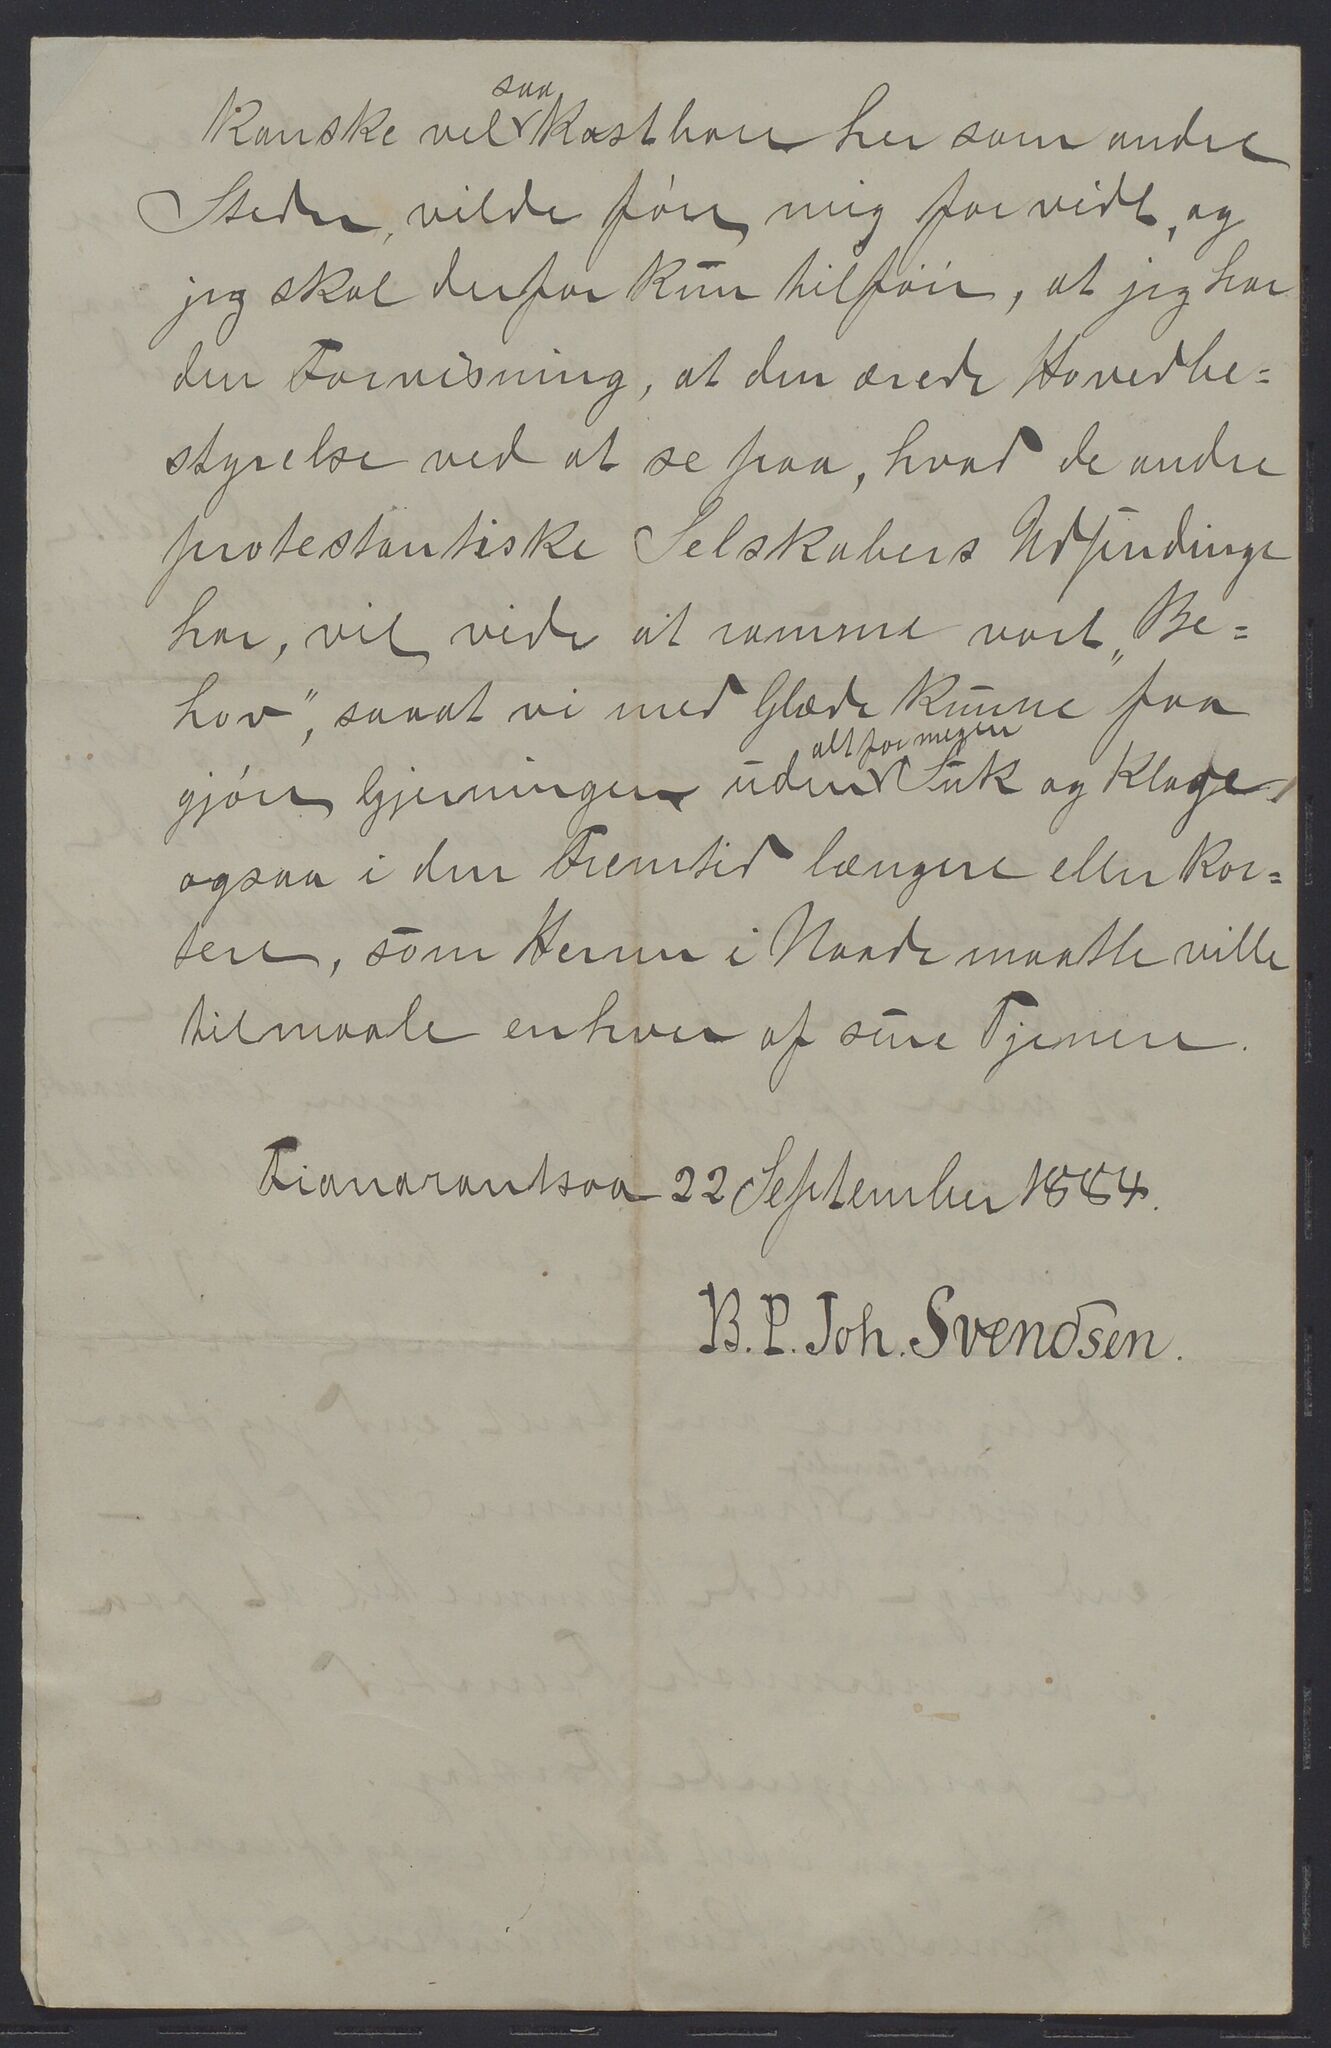 Kanske vel saa Kostbare her som andre
Steder, vilde føre mig for vidt, og
jeg skal derfor kun tilføie, at jeg har
den Forvisning, at den ærede Hovedbe=
styrelse ved at se paa, hvad de andre
protestantiske Selskabers Udsendinge
har, vil vide at ramme vort „Be=
hov", saaat vi med Glæde kunne faa
gjøre Gjerningen uden alt for megen Suk og Klage
ogsaa i den Fremtid længere eller kor=
tere, som Herren i Naade maatte ville
tilmaale enhver af sine Tjenere.
Fianarantsoa 22 September 1884.
B. P. Joh. Svendsen.